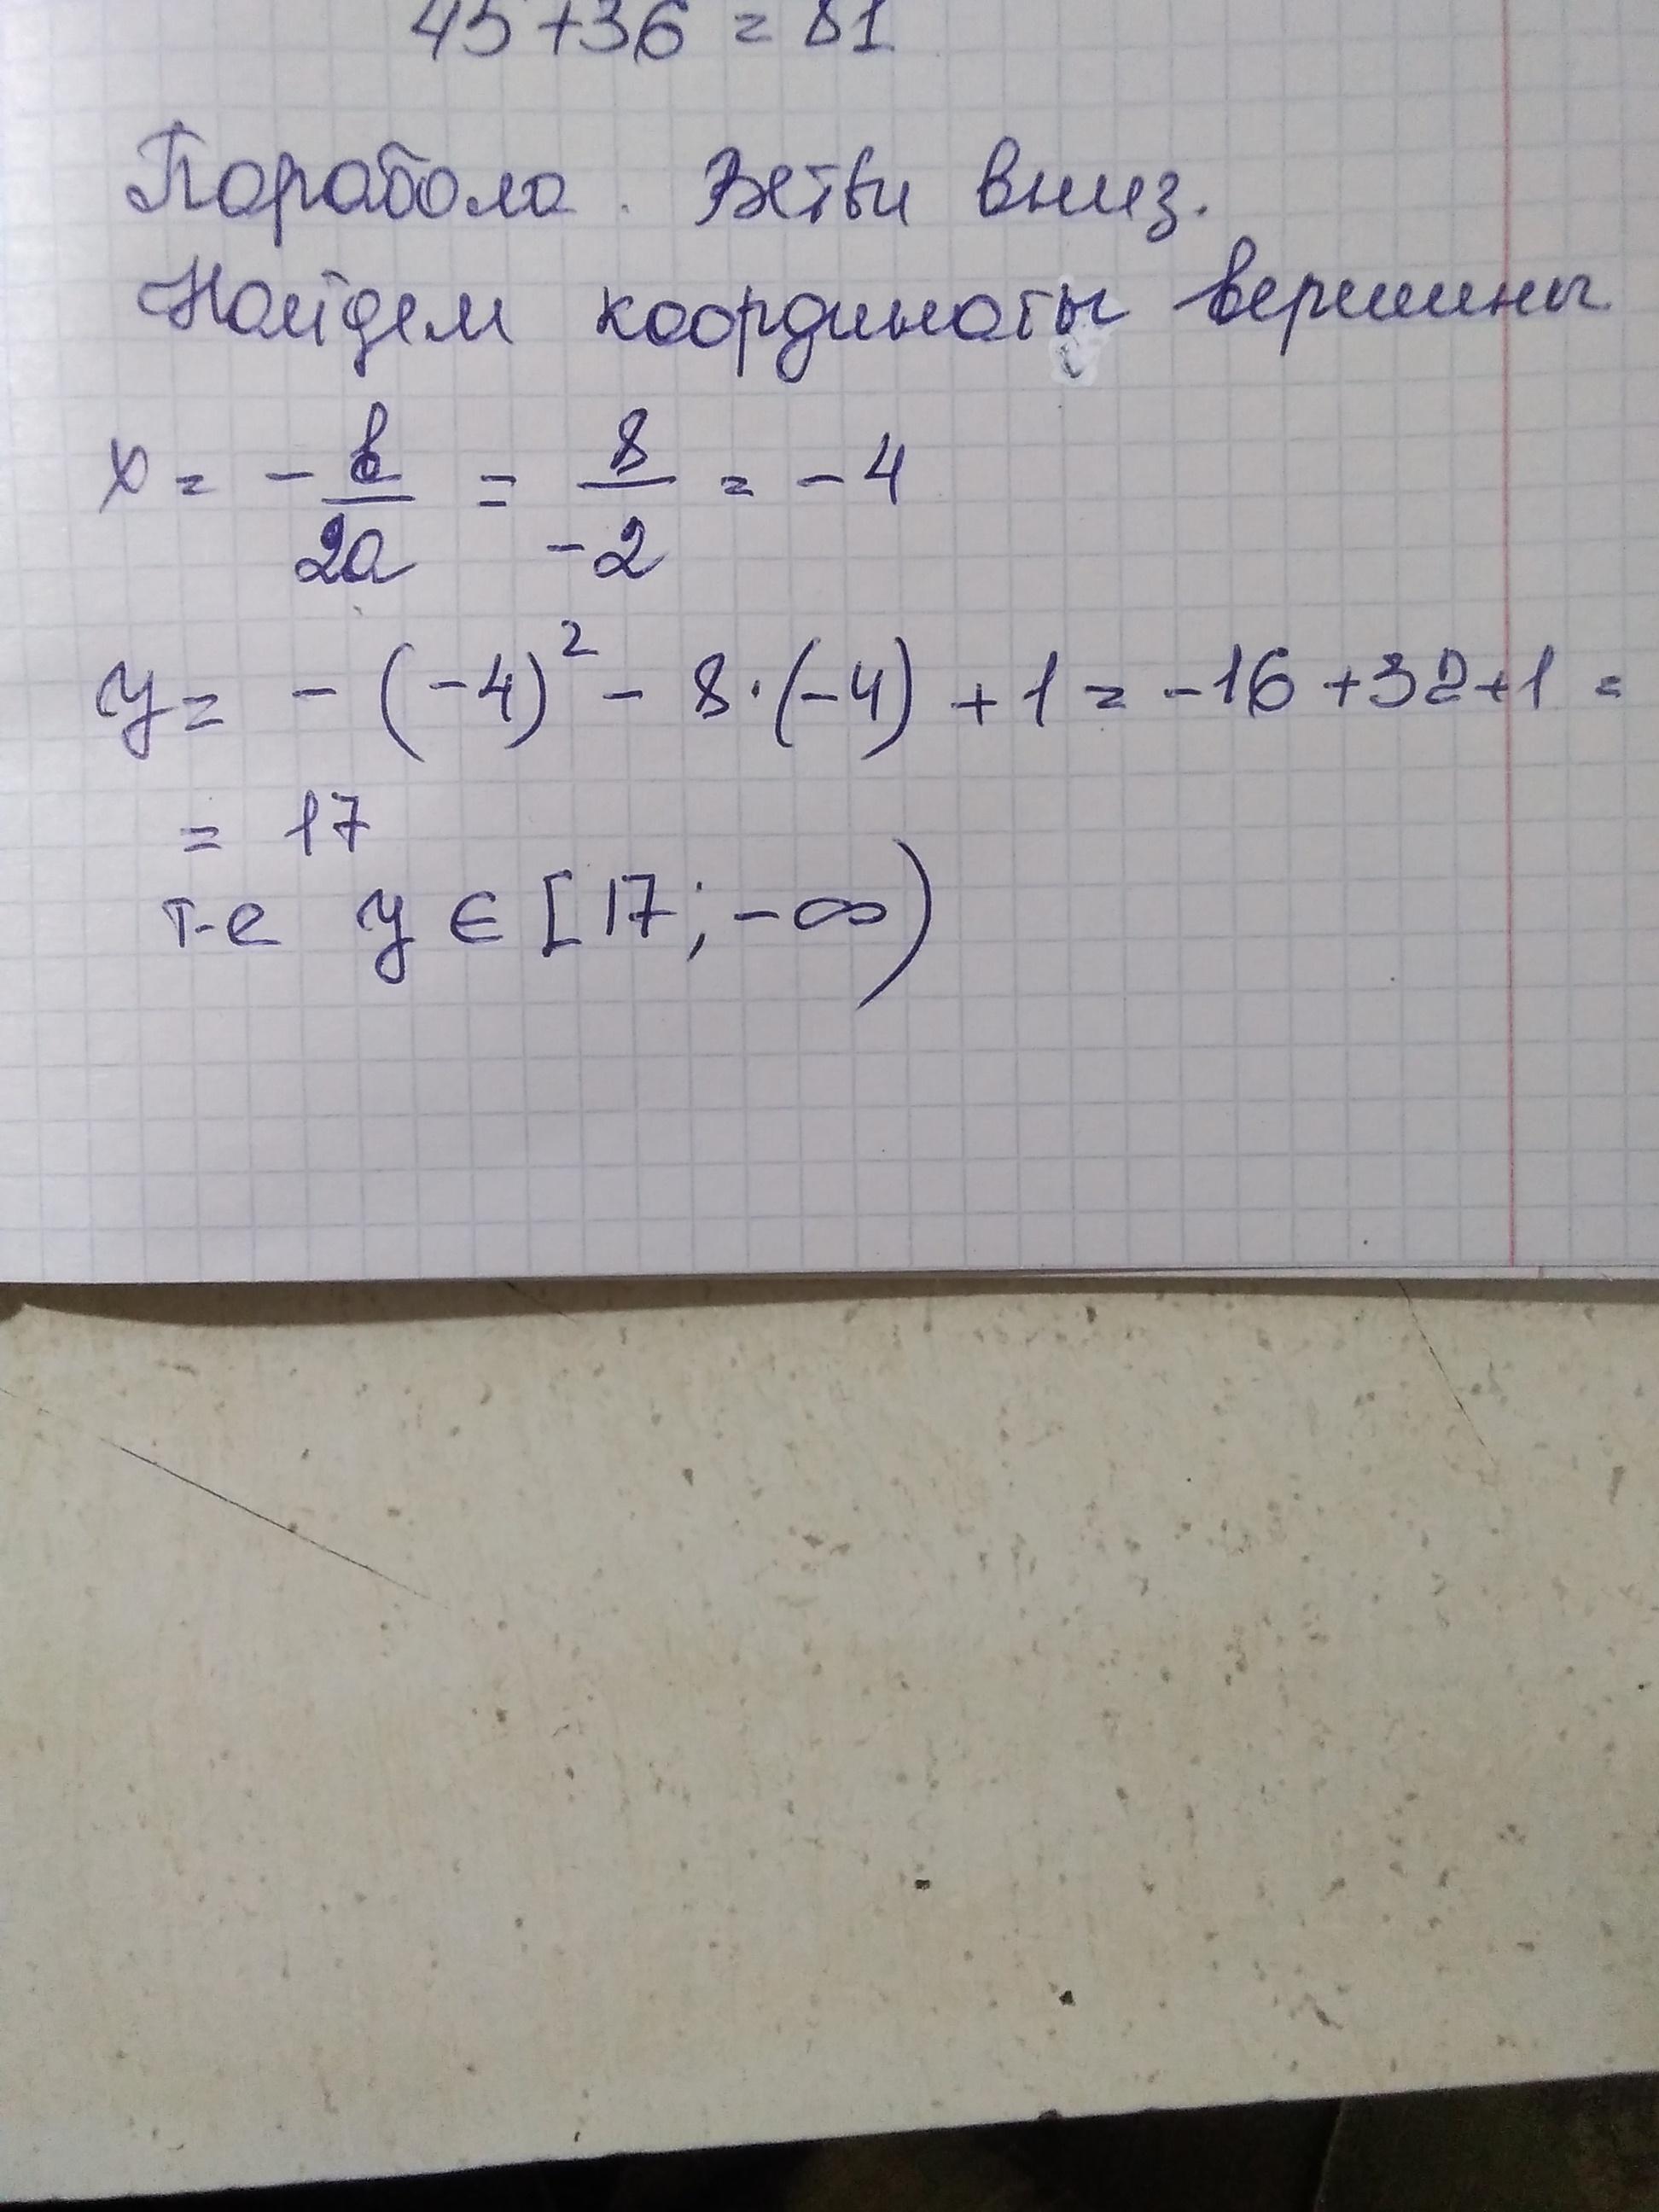 45+36 = 81
Парабола. Ветви вниз.
Найдем координаты вершины
x = - b/2a = 8/-2 = -4
y = - (-4)² - 8·(-4) + 1 = -16 + 32 + 1 =
= 17
т-е y ∈ [17; -∞)